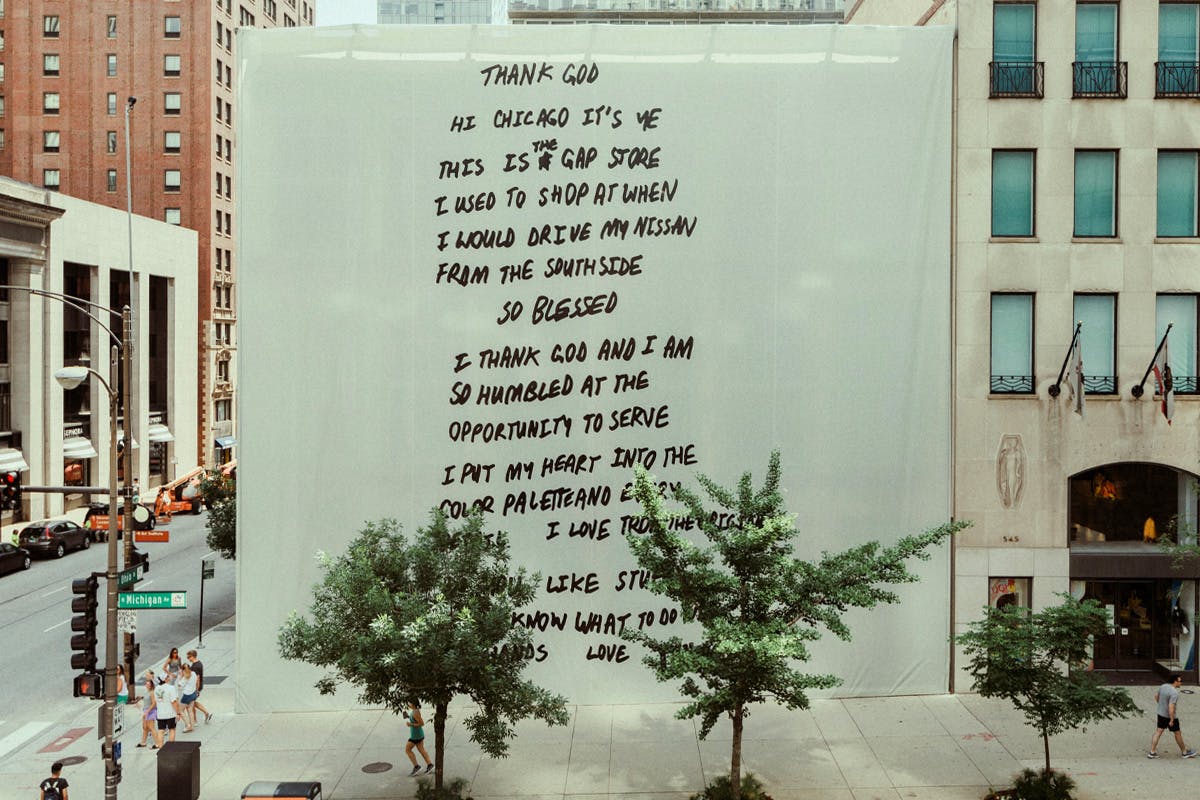 THANK GOD
HI CHICAGO IT'S YE
THIS IS THE GAP STORE
I USED TO SHOP AT WHEN
I WOULD DRIVE MY NISSAN
FROM THE SOUTHSIDE
SO BLESSED
I THANK GOD AND I AM
SO HUMBLED AT THE
OPPORTUNITY TO SERVE
I PUT MY HEART INTO THE
COLOR PALETTE AND
I LOVE THE
LIKE
KNOW WHAT TO DO
LOVE
SEPHORA
N Michigan Av
Ohio
545